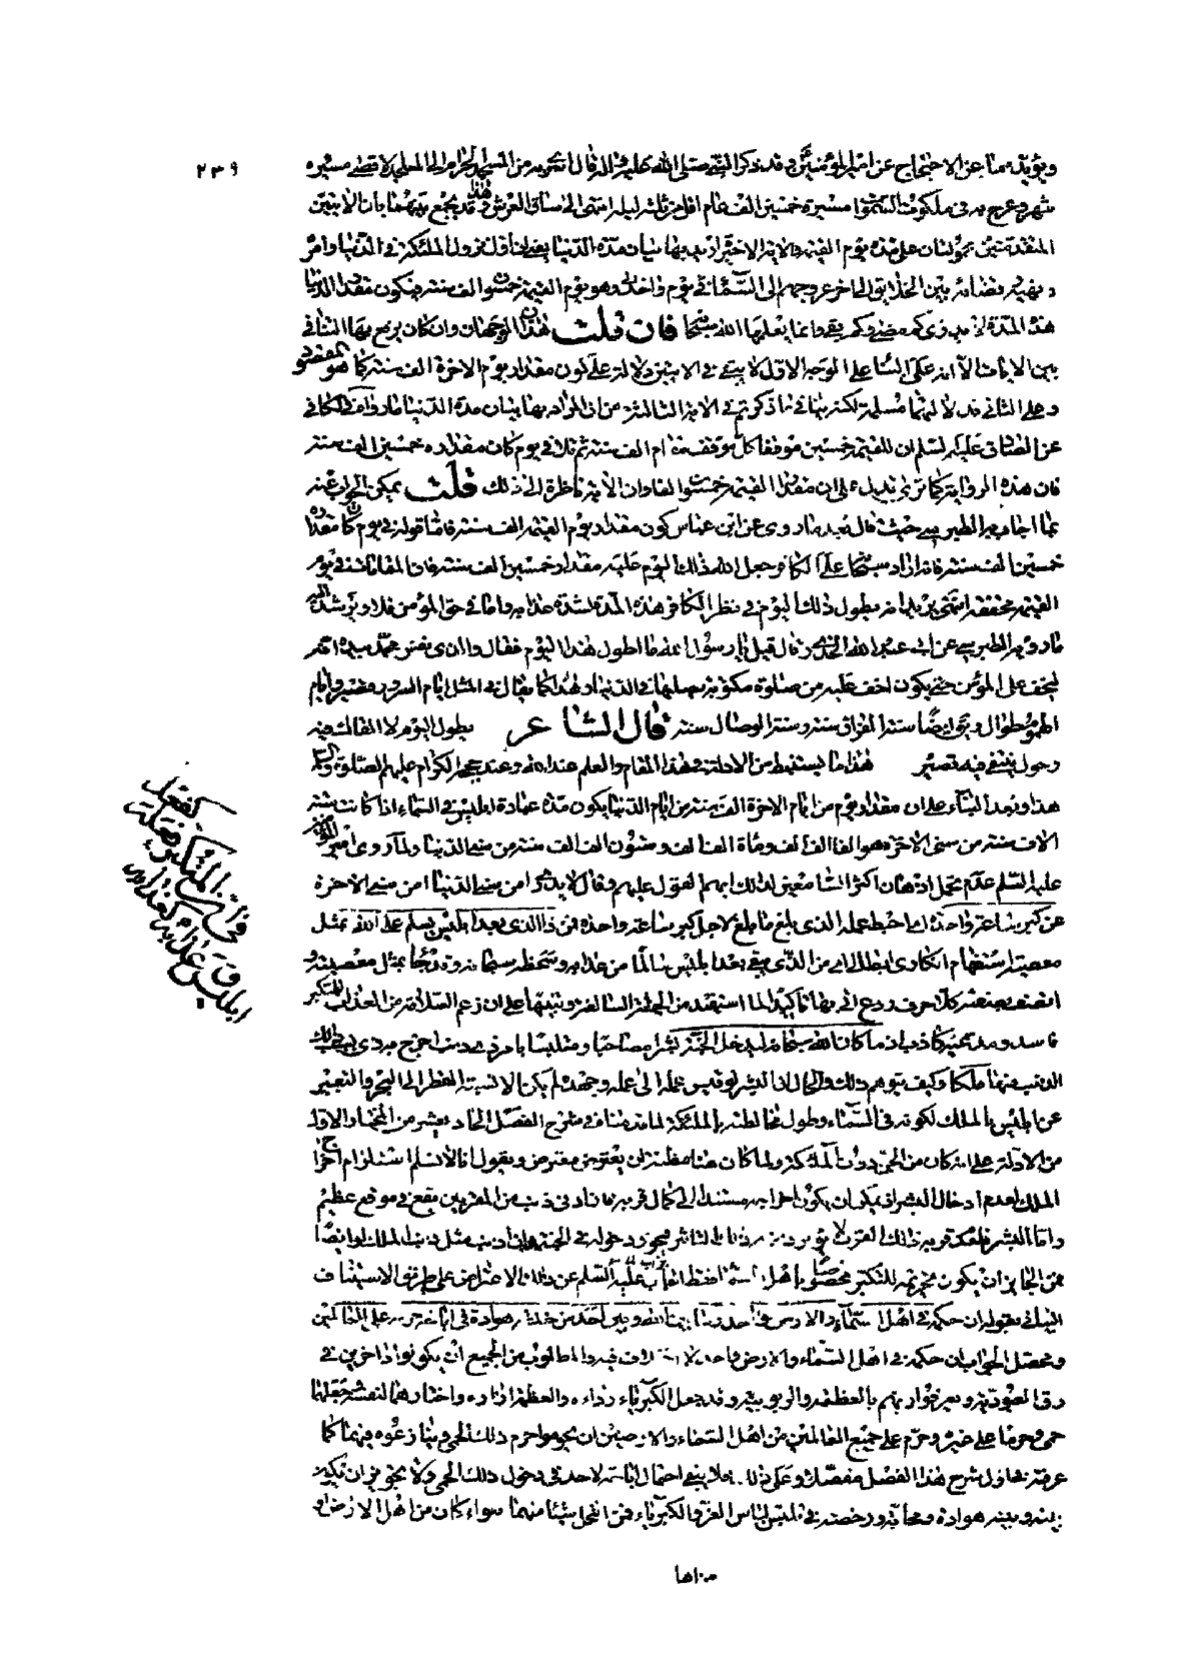 ٢٣٩
ويؤيده ما عن الاحتجاج عن امير المؤمنين وقد ذكر النبي صلى الله عليه واله قال اسري به من المسجد الحرام الى المسجد الاقصى مسيرة
شهر وعرج به في ملكوت السموات مسيرة خمسين الف عام اقل من ثلث ليلة انتهى الى ساق العرش هذا وقد يجمع بينهما بان الايتين
المتقدمتين محمولتان على يوم القيمة والاية الاخيرة اريد بها بيان مدة الدنيا نزول الملئكة في الدنيا وامر
وقضائه بين الخلايق الى اخر عروجهم الى السماء في يوم واحد وهو يوم القيمة خمسون الف سنة فيكون مقدار الدنيا
هذه المدة لا يدرى كم مضى وكم بقي وانما يعلمها الله سبحانه فان قلت هذان الوجهان وان كان يرتفع بهما التنافي
بين الايات الا انه على الوجه الاول لا يبقى في الايتين دلالة على كون مقدار يوم الاخرة الف سنة كما هو المقصود
وعلى الثاني فدلالتهما مسلمة لكنه ينافي ما ذكرتم في الاية الثالثة من ان المراد بها بيان مدة الدنيا ما رواه في الكافي
عن الصادق عليه السلم ان للقيمة خمسين موقفا كل موقف مقام الف سنة ثم تلا في يوم كان مقداره خمسين الف سنة
فان هذه الرواية كما ترى تدل على ان مقدار القيمة خمسون الفا وان الاية ناظرة الى ذلك قلت يمكن الجواب عنه
بما اجاب به الطبرسي حيث قال بعد ما روى عن ابن عباس كون مقدار يوم القيمة الف سنة فاما قوله في يوم كان مقداره
خمسين الف سنة فانه اراد سبحانه على الكافر جعل الله ذلك اليوم عليه مقدار خمسين الف سنة فان المقامات في يوم
القيمة مختلفة انتهى يريد انه يطول ذلك اليوم في نظر الكافر هذه المدة لشدة عذابه واما في حق المؤمن فلا ويرشد اليه
ما رويه الطبرسي عن ابي عبد الله الخدري قال قيل يا رسول الله ما اطول هذا اليوم فقال والذي نفس محمد بيده انه
ليخفف على المؤمن حتى يكون اخف عليه من صلوة مكتوبة يصليها في الدنيا وهذا كما يقال في المثل ايام السرور قصيرة وايام
الهموم طوال ويق ايضا سنة الفراق سنة وسنة الوصال سنة قال الشاعر يطول اليوم لا القاك فيه
وحول نلتقي فيه قصير هذا ما يستنبط من الادلة في هذا المقام والعلم عند الله وعند حججه الكرام عليهم الصلوة والسلم
هذا وبعد البناء على ان مقدار يوم من ايام الاخرة الف سنة من ايام الدنيا يكون مدة عبادة ابليس في السماء اذا كانت ستة
الاف سنة من سنى الاخرة هو الفا الف الف ومأة الف الف وستون الف الف سنة من سني الدنيا ولما روى امير المؤمنين
عليه السلم عدم تحمل اذهان اكثر السامعين لذلك ابهم القول عليهم وقال لا يدرى امن سني الدنيا ام من سني الاخرة
عن كبر ساعة واحدة اي احبط عمله الذي بلغ ما بلغ لاجل كبر ساعة واحدة فمن ذا الذي بعد ابليس يسلم على الله بمثل
معصيته استفهام انكاري ابطالي اي من الذي يبقى بعد ابليس سالما من عذابه وسخطه سبحانه وقد جاء بمثل معصيته و
اتصف بصفته كلا حرف ردع اتى بها تأكيدا لما استفيد من الجملة السالفة وتنبيها على ان زعم السلامة من العذاب للمتكبر
فاسد ومدعيه كاذب اذ ما كان الله سبحانه ليدخل الجنة بشرا مصاحبا ومتلبسا بامر اخرج به منها ملكا
الذنب منها ملكا وكيف يتوهم ذلك والحال ان البشر لو قيس عمله الى عمله وجهده لم يكن الا نسبة القطر الى البحر والتعبير
عن ابليس بالملك لكونه في السماء وطول مخالطته بالملئكة لما قدمناه في شرح الفصل الحادي عشر من المختار الاول
من الادلة على انه كان من الجن دون الملئكة ولما كان هنا مظنة ان يعترض معترض ويقول انا لا نسلم استلزام اخراج
الملك لعدم ادخال البشر اذ يمكن ان يكون اخراجه مستندا الى كمال قربه فان ادنى ذنب من المقربين يقع في موقع عظيم
واما البشر فلفقد قربه ذلك القرب لا يؤثر ذنبه هذا التاثير فيجوز دخوله في الجنة وان اذنب مثل ذنب الملك او ايضا
فمن الجايز ان يكون تحريمه للتكبر مخصوصا باهل السماء فقط اجاب عليه السلم عن ذلك الاعتراض على طريق الاستيناف
البياني بقوله ان حكمه في اهل السماء والارض واحد وما بين الله وبين احد من خلقه هوادة في اباحة حمى حرمه على العالمين
ومحصل الجواب ان حكمه في اهل السماء والارض واحد لا اختلاف فيه والمطلوب من الجميع ان يكونوا داخرين في
رق العبودية ومعرفة ربهم بالعظمة والربوبية وقد جعل الكبرياء رداءه والعظمة ازاره واختارهما لنفسه وجعلهما
حمى وحرما على غيره وحرم على جميع العالمين من اهل السماء والارضين ان يحوموا حرم ذلك الحمى وينازعوه فيهما كما
عرفته في اول شرح هذا الفصل مفصلا وعلى ذلك فلا يبقى احتمال اباحته لاحد في دخول ذلك الحمى ولا يجوز ان يكون
بينه وبينه هوادة ومحاباة ورخصة في تلبس لباس العز والكبرياء فمن انتحل شيئا منهما سواء كان من اهل الارض او
من اهل
كفعل
المتكبر
ابليس